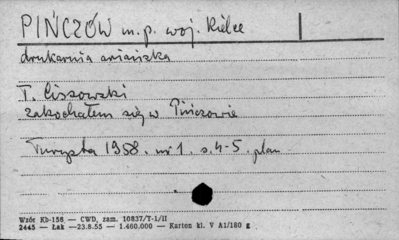 PIŃCZÓW m.p. woj. Kielce
drukarnia ariańska
T. Lissowski
zakochałem się w Pińczowie
Turysta 1958. nr 1. s. 4-5. plan
Wzór Kb-156 — CWD, zam. 10837/T-1/II
2445 — Łak —23.8.55 — 1.460.000 — Karton kl. V A1/180 g